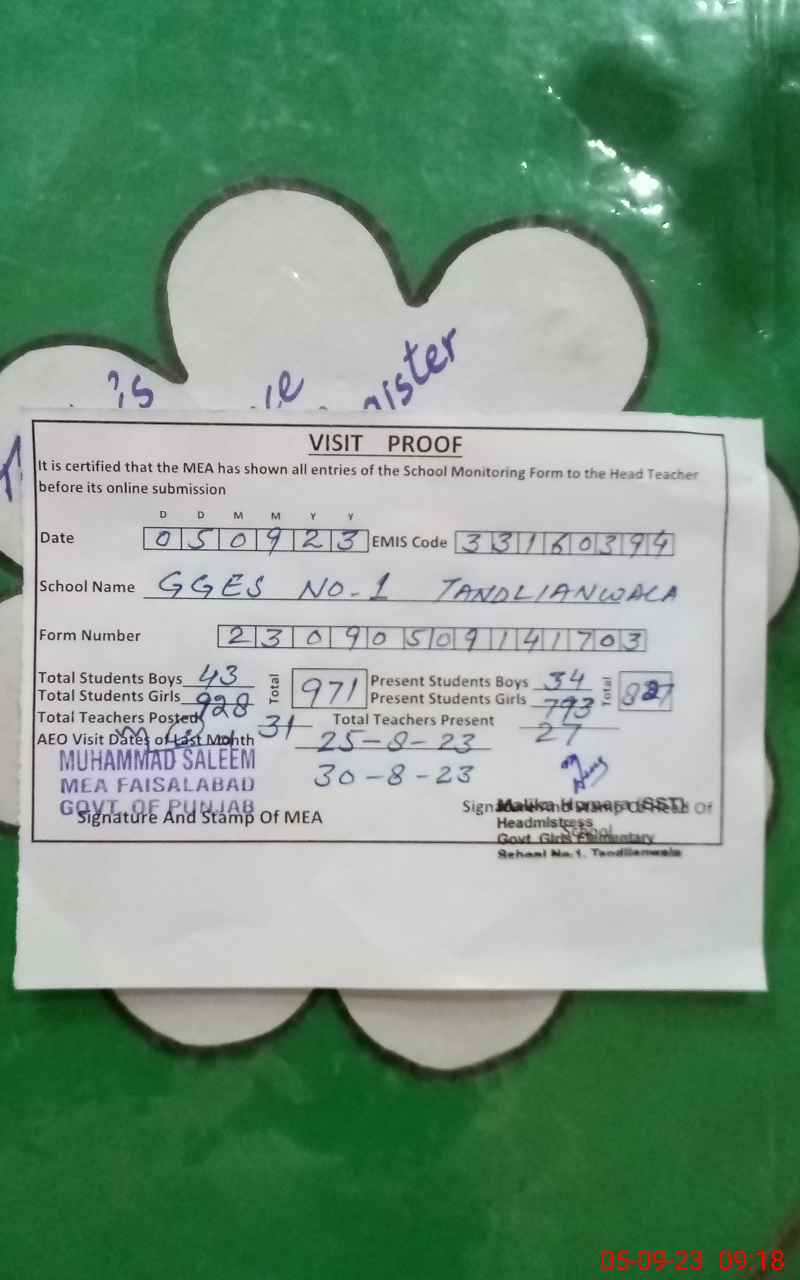 's
nister
VISIT PROOF
It is certified that the MEA has shown all entries of the School Monitoring Form to the Head Teacher
before its online submission
D D M M Y Y
Date 050923 EMIS Code 33160394
School Name GGES NO-1 TANDLIANWALA
Form Number 23090509141703
Total Students Boys 43 Total 971 Present Students Boys 34 Total 827
Total Students Girls 928 Present Students Girls 793
Total Teachers Posted 31 Total Teachers Present 27
AEO Visit Dates of Last Month 25-8-23
30-8-23
MUHAMMAD SALEEM
MEA FAISALABAD
GOVT. OF PUNJAB
Signature And Stamp Of MEA
Signature And Stamp Of Head Of
School
Malika (SST)
Headmistress
Govt. Girls Elementary
School No.1, Tandlianwala
05-09-23 09:18